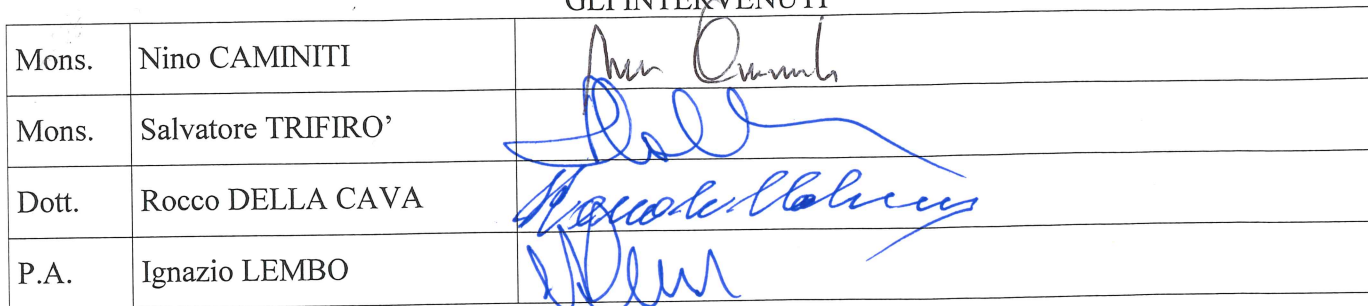 GLI INTERVENUTI
Mons. Nino CAMINITI
Mons. Salvatore TRIFIRO’
Dott. Rocco DELLA CAVA
P.A. Ignazio LEMBO